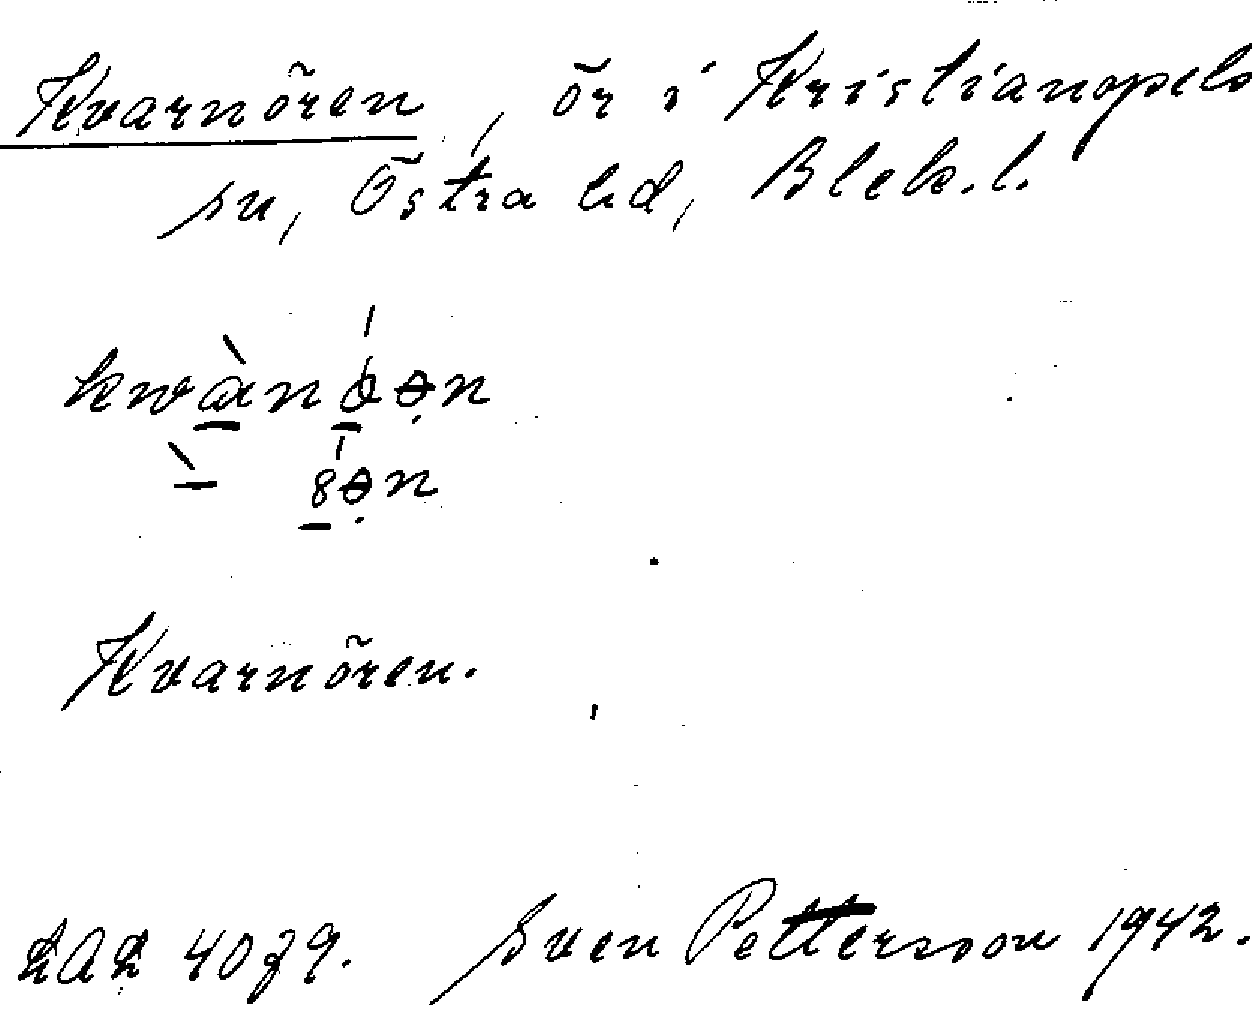 Kvarnören, ör i Kristianopels
sn, Östra hd, Blek. l.
Kvarnören.
LAL 4079. Sven Pettersson 1942.